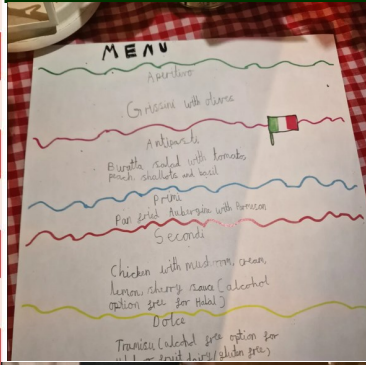 MENU
Aperitivo
Grissini with olives
Antipasti
Buratta salad with tomato
peach, shallots and basil
Primi
Pan fried Aubergine with Parmesan
Secondi
Chicken with mushroom, cream,
lemon, sherry sauce [alcohol
option free for Halal]
Dolce
Tramisu (alcohol free option for
fruit dairy/gluten free)